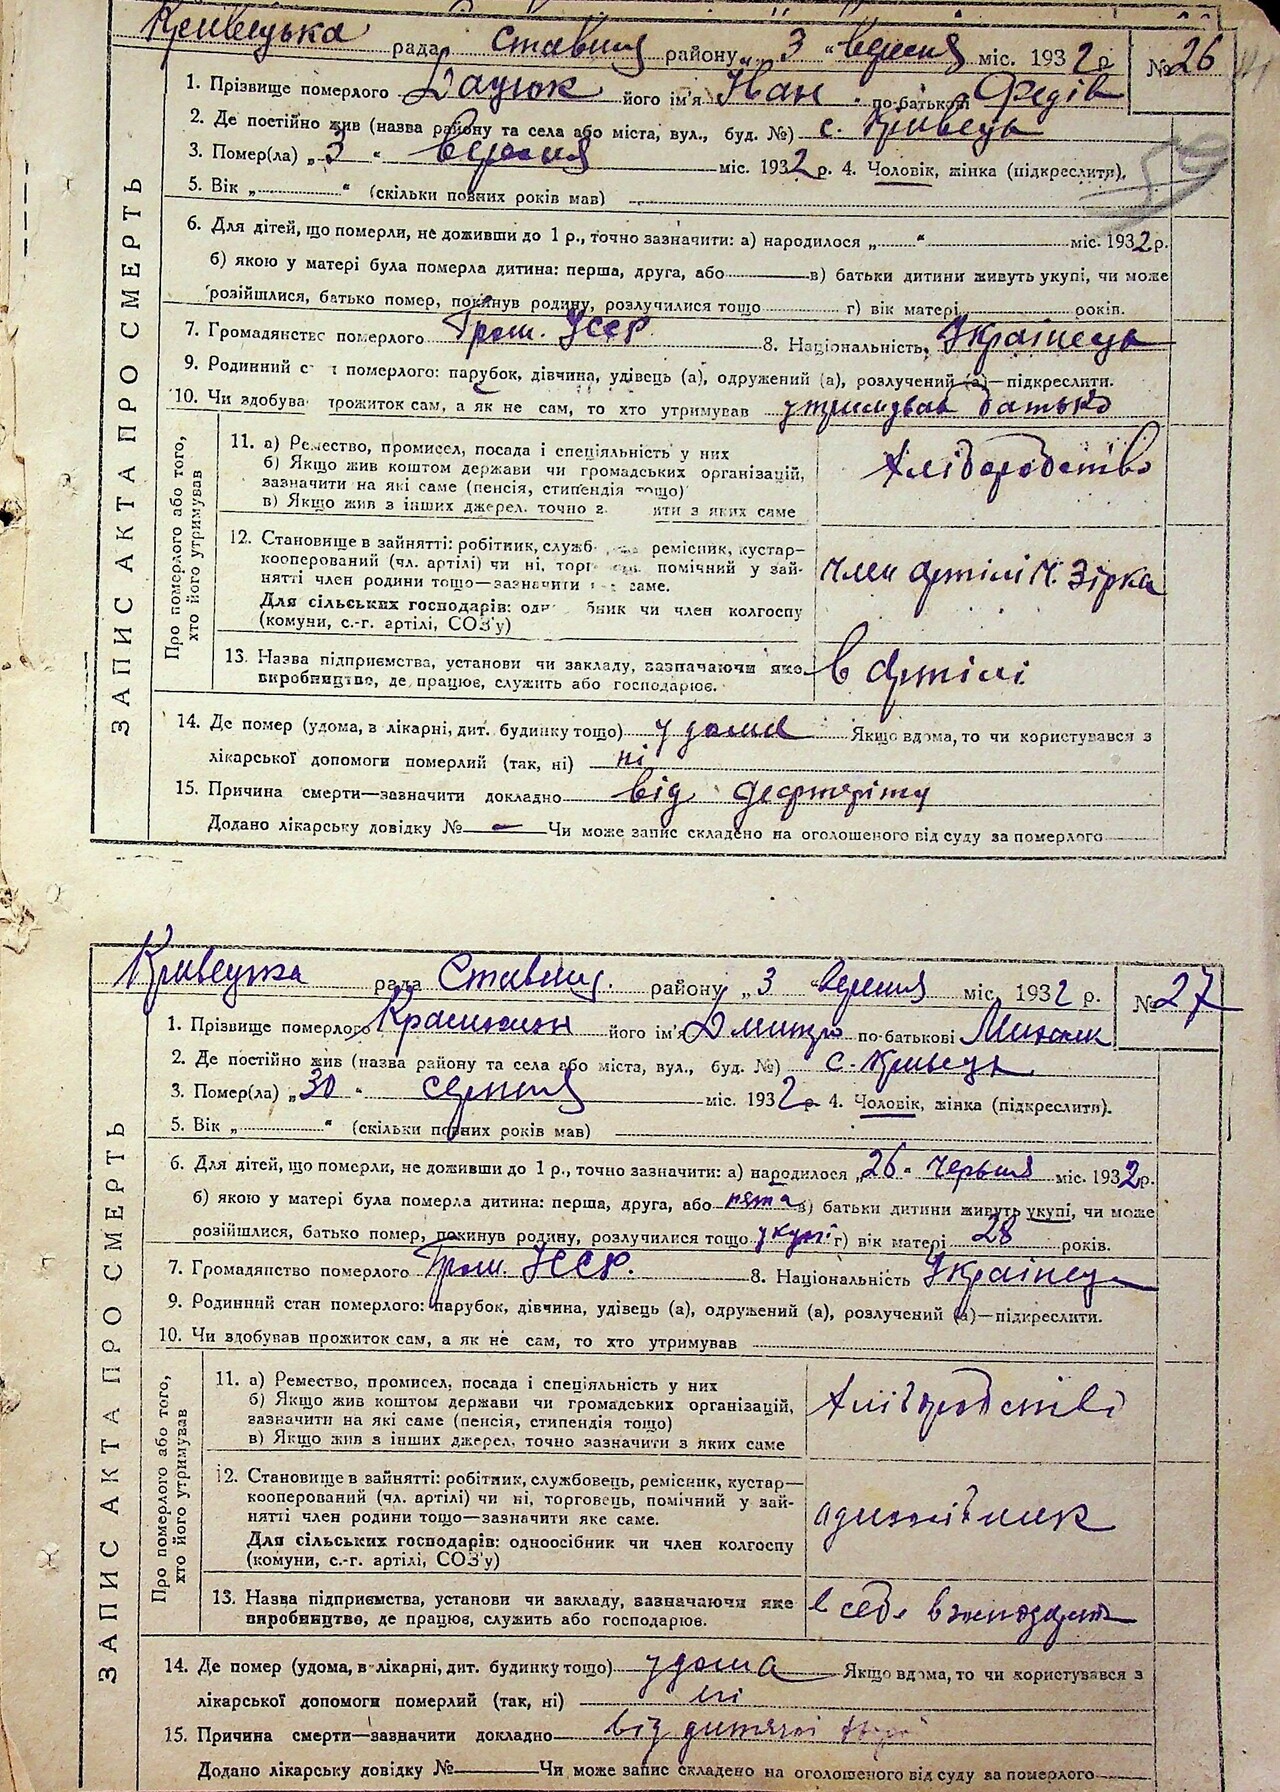 Кривецька рада Ставищ району „ 3 “ вересня міс. 1932 р № 26
1. Прізвище померлого Дацюк його ім'я Іван по-батькові Федів
2. Де постійно жив (назва району та села або міста, вул., буд. №) с. Кривець
3. Помер(ла) „ 3 “ вересня міс. 1932 р. 4. Чоловік, жінка (підкреслити).
59
5. Вік „ “ (скільки повних років мав)
6. Для дітей, що померли, не доживши до 1 р., точно зазначити: а) народилося „ “ міс. 1932 р.
б) якою у матері була померла дитина: перша, друга, або в) батьки дитини живуть укупі, чи може
розійшлися, батько помер, покинув родину, розлучилися тощо г) вік матері років.
7. Громадянство померлого Гром. УССР 8. Національність Українець
9. Родинний с н померлого: парубок, дівчина, удівець (а), одружений (а), розлучений (а)—підкреслити.
10. Чи здобува прожиток сам, а як не сам, то хто утримував утримував батько
ЗАПИС АКТА ПРО СМЕРТЬ
Про померлого або того, хто його утримував
11. а) Ремество, промисел, посада і спеціяльність у них
б) Якщо жив коштом держави чи громадських організацій,
зазначити на які саме (пенсія, стипендія тощо)
в) Якщо жив з інших джерел, точно з ити з яких саме
Хліборобство
12. Становище в зайнятті: робітник, служб ремісник, кустар—
кооперований (чл. артілі) чи ні, торг помічний у зай-
нятті член родини тощо—зазначити саме.
Для сільських господарів: од бник чи член колгоспу
(комуни, с.-г. артілі, СОЗ'у)
член артілі Ч. Зірка
13. Назва підприємства, установи чи закладу, зазначаючи яке
виробництво, де працює, служить або господарює.
в артілі
14. Де помер (удома, в лікарні, дит. будинку тощо) удома Якщо вдома, то чи користувався з
лікарської допомоги померлий (так, ні) ні
15. Причина смерти—зазначити докладно від дефтеріту
Додано лікарську довідку № — Чи може запис складено на оголошеного від суду за померлого
Кривецька рада Ставищ. району „ 3 “ вересня міс. 1932 р. № 27
1. Прізвище померлого його ім'я Дмитро по-батькові
2. Де постійно жив (назва району та села або міста, вул., буд. №) с. Кривець
3. Помер(ла) „ 30 “ серпня міс. 1932 р. 4. Чоловік, жінка (підкреслити).
5. Вік „ “ (скільки повних років мав)
6. Для дітей, що померли, не доживши до 1 р., точно зазначити: а) народилося „ 26 “ червня міс. 1932 р.
б) якою у матері була померла дитина: перша, друга, або пята в) батьки дитини живуть укупі, чи може
розійшлися, батько помер, покинув родину, розлучилися тощо укупі г) вік матері 28 років.
7. Громадянство померлого Гром. УССР. 8. Національність Українець
9. Родинний стан померлого: парубок, дівчина, удівець (а), одружений (а), розлучений (а)—підкреслити.
10. Чи здобував прожиток сам, а як не сам, то хто утримував
ЗАПИС АКТА ПРО СМЕРТЬ
Про померлого або того, хто його утримував
11. а) Ремество, промисел, посада і спеціяльність у них
б) Якщо жив коштом держави чи громадських організацій,
зазначити на які саме (пенсія, стипендія тощо)
в) Якщо жив з інших джерел, точно зазначити з яких саме
Хліборобстві
12. Становище в зайнятті: робітник, службовець, ремісник, кустар—
кооперований (чл. артілі) чи ні, торговець, помічний у зай-
нятті член родини тощо—зазначити яке саме.
Для сільських господарів: одноосібник чи член колгоспу
(комуни, с.-г. артілі, СОЗ'у)
13. Назва підприємства, установи чи закладу, зазначаючи яке
виробництво, де працює, служить або господарює.
в себе в
14. Де помер (удома, в лікарні, дит. будинку тощо) удома Якщо вдома, то чи користувався з
лікарської допомоги померлий (так, ні) ні
15. Причина смерти—зазначити докладно від дитячої
Додано лікарську довідку № Чи може запис складено на оголошеного від суду за померлого